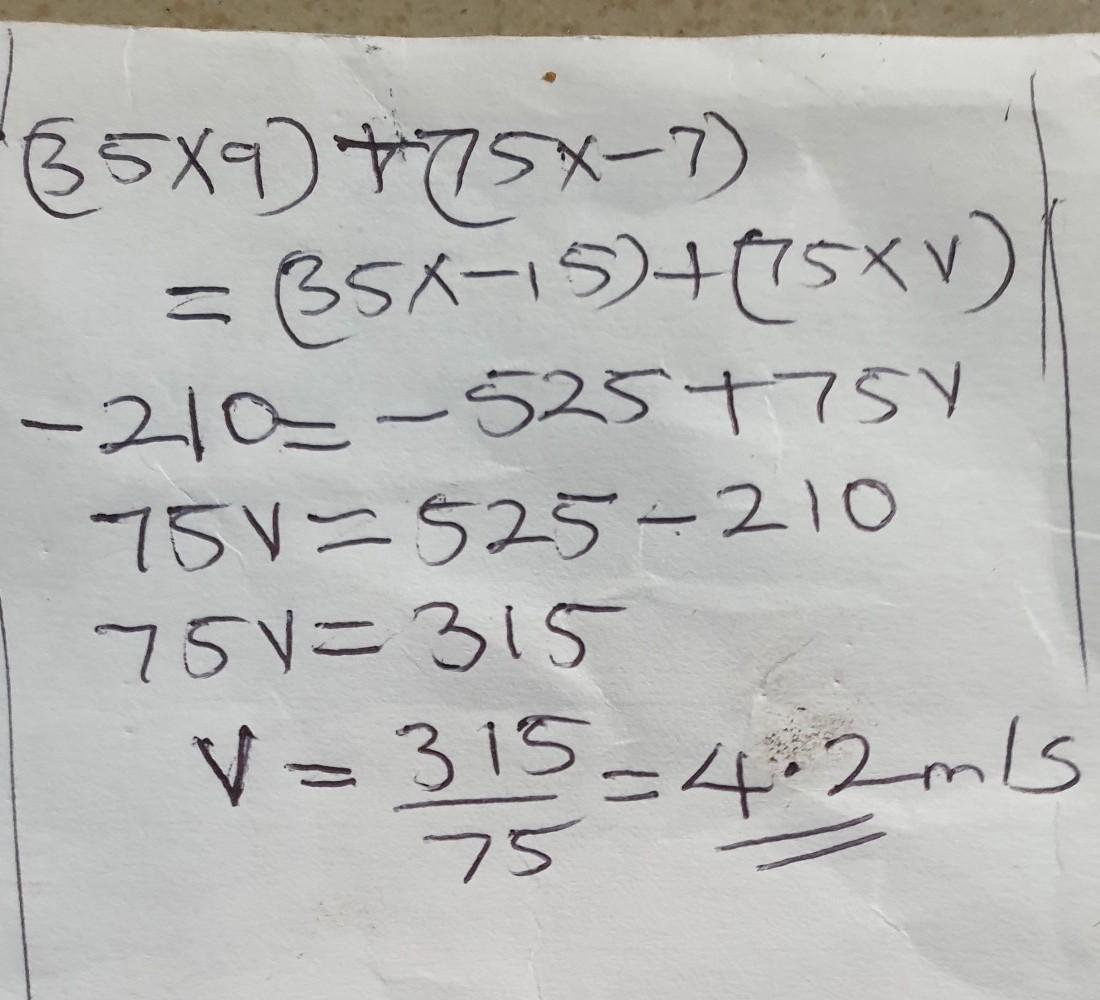 (35×9)+(75×-7)
=(35×-15)+(75×V)
-210=-525+75V
75V=525-210
75V=315
V=315/75=4.2m/s